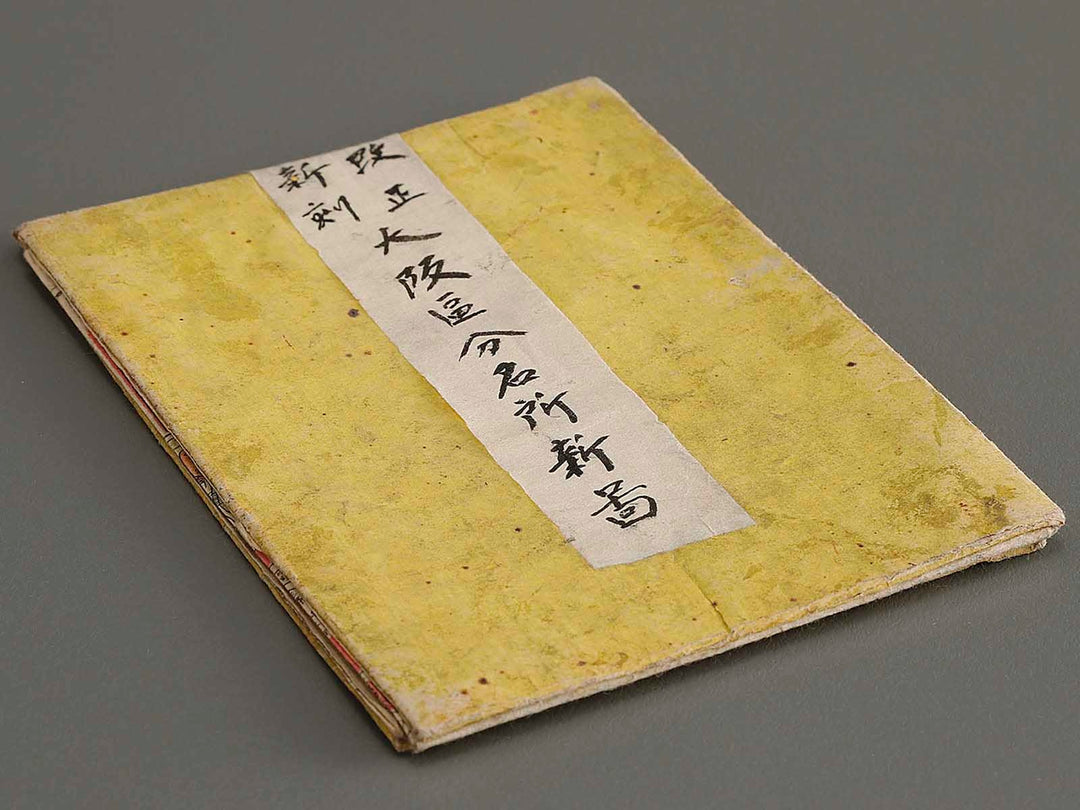 改正
新刻
大阪區分名所新圖